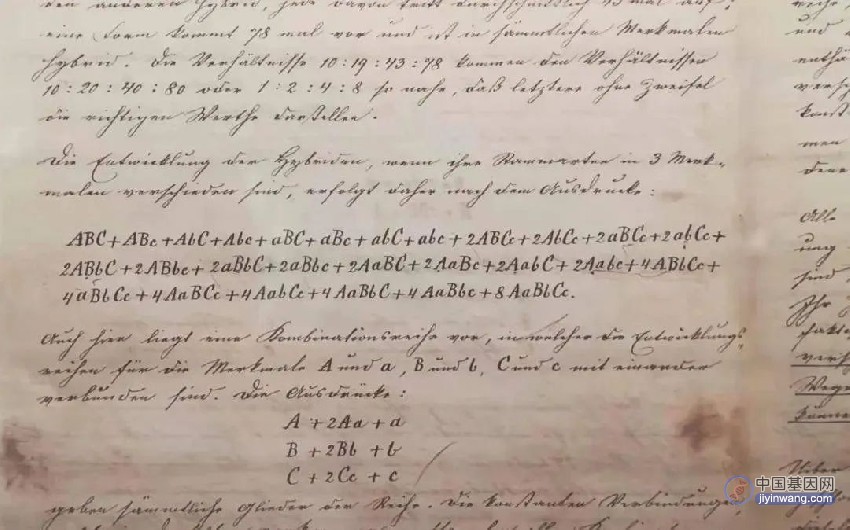 den anderen Hybrid, jede davon tritt durchschnittlich 43 mal auf;
eine Form kommt 78 mal vor und ist in sämmtlichen Merkmalen
Hybrid. Die Verhältnisse 10:19:43:78 kommen den Verhältnissen
10:20:40:80 oder 1:2:4:8 so nahe, daß letztere ohne Zweifel
die richtigen Werthe darstellen.
Die Entwicklung der Hybriden, wenn ihre Stammarten in 3 Merk-
malen verschieden sind, erfolgt daher nach dem Ausdrucke:
ABC+ABc+AbC+Abc+aBC+aBc+abC+abc+2ABCc+2AbCc+2aBCc+2abCc+
2ABbC+2ABbc+2aBbC+2aBbc+2AaBC+2AaBc+2AabC+2Aabc+4ABbCc+
4aBbCc+4AaBCc+4AabCc+4AaBbC+4AaBbc+8AaBbCc.
Auch hier liegt eine Kombinationsreihe vor, in welcher die Entwicklungs-
reihen für die Merkmale A und a, B und b, C und c mit einander
verbunden sind. Die Ausdrücke:
A+2Aa+a
B+2Bb+b
C+2Cc+c
geben sämmtliche Glieder der Reihe. Die konstanten Verbindungen
und
men
Alle
sind
Ihr
Wege
中国基因网
jiyinwang.com